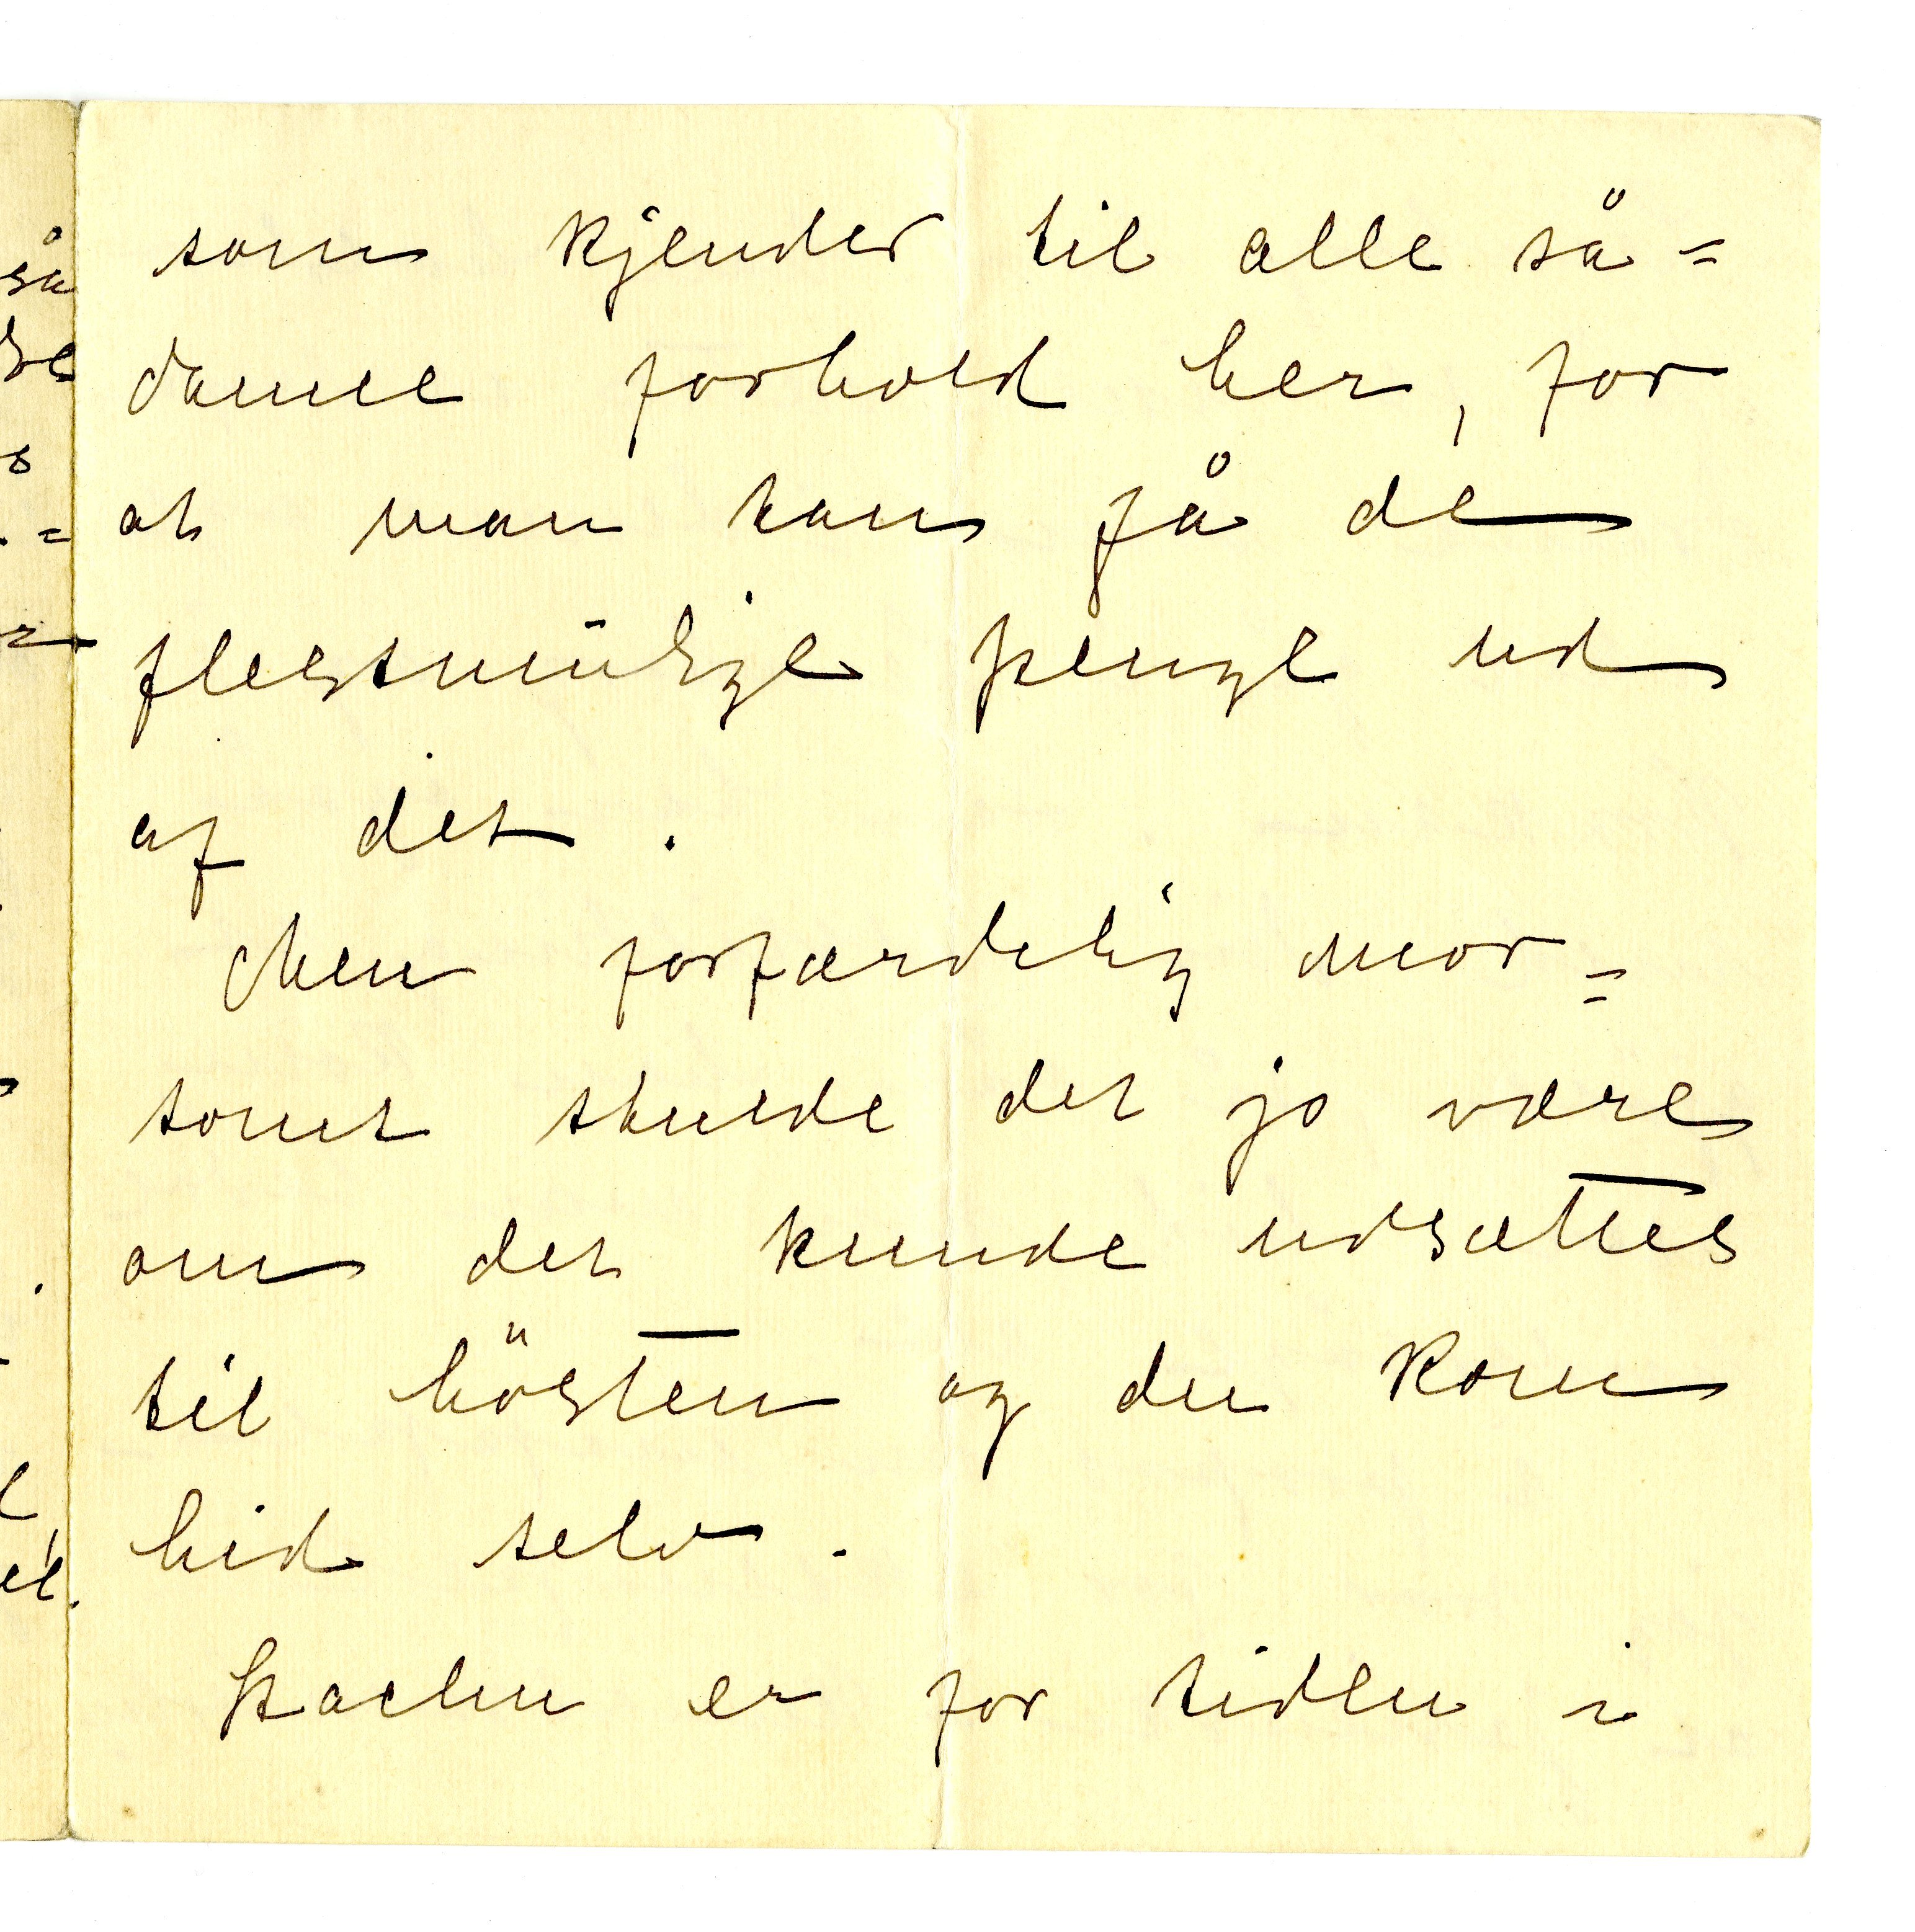 som kjender til alle så=
danne forhold her, for
at man kan få de
flestmülige penge ud
af det.
Men forfærdelig mor=
somt skulde det jo være
om det kunde udsættes
til hösten og du kom
hid selv.
er for tiden i